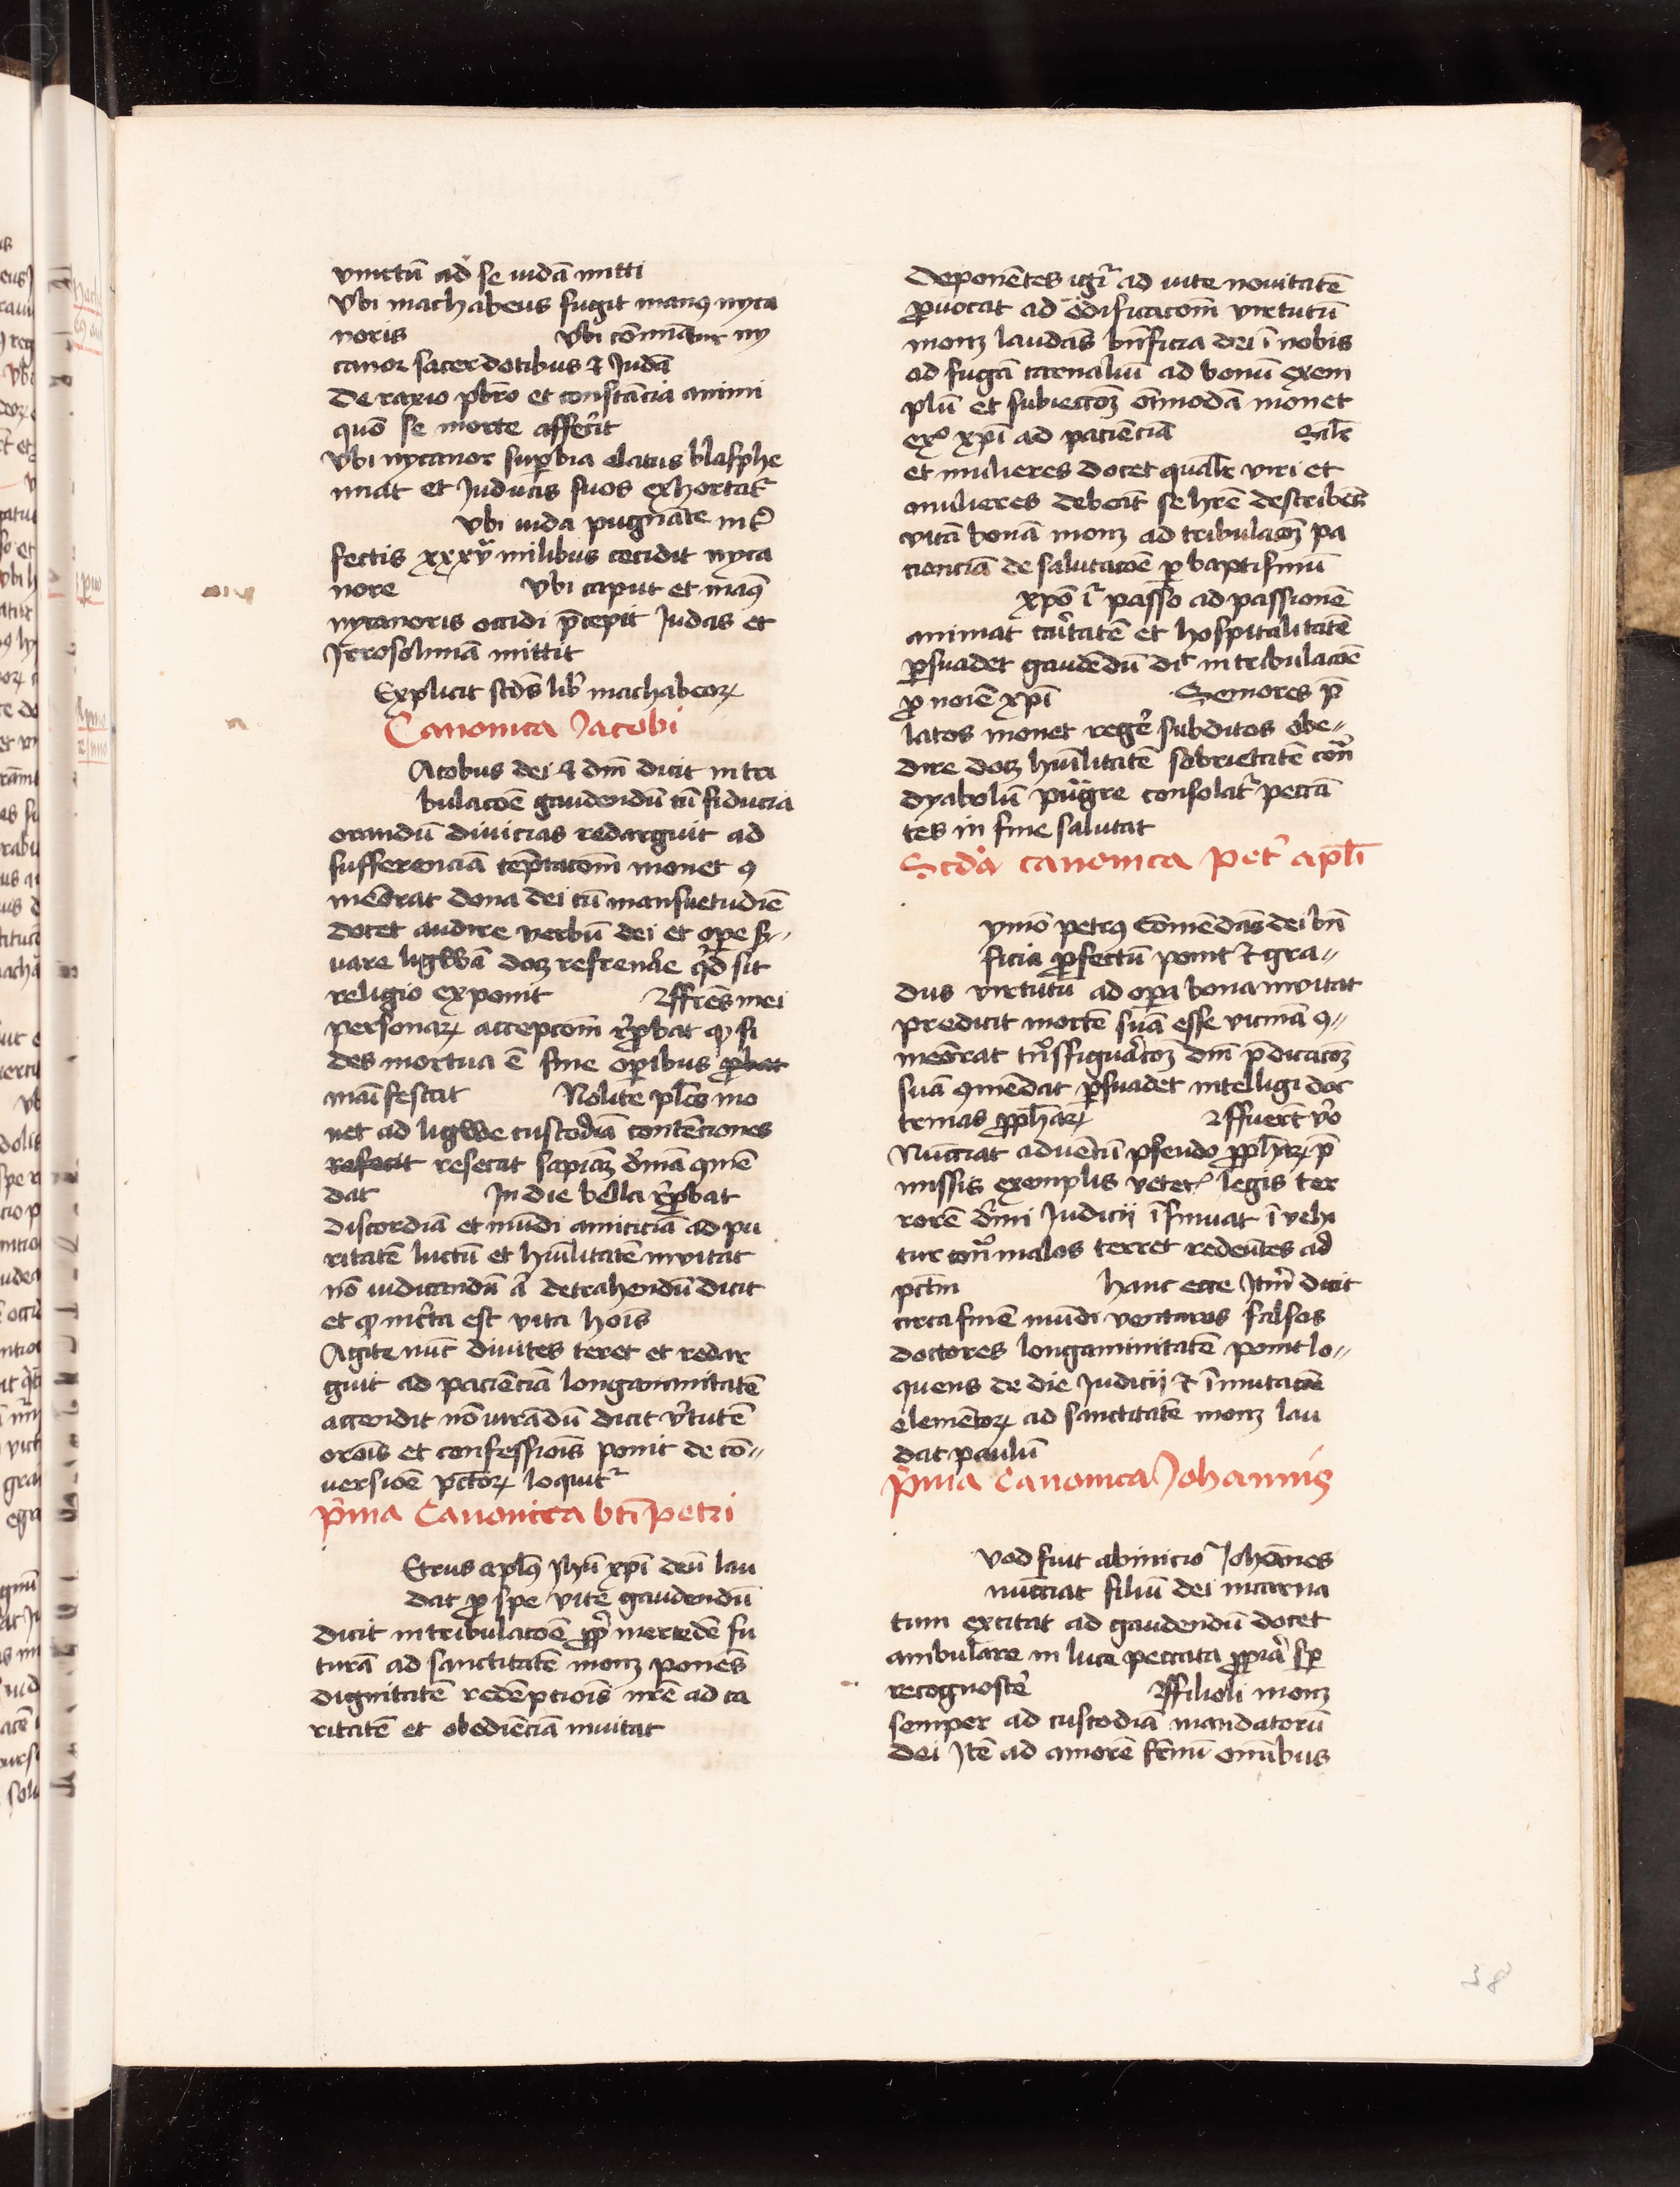 vinctū ad se iudā mitti
Vbi machabeus fugit manꝰ nyca
noris Vbi cōminātur ny
canor sacerdotibus et Judā
De raxio pbr̄o et constācia animi
quō se morte affecit
Vbi nycanor supbia elatus blasphe
miat et Judacis suos exhortat᷑
Vbi iuda pugnāte int̄
fectis xxxv milibus cecidit nyca
nore Vbi caput et manꝰ
nycanoris occidi p̄cepit Judas et
Jerosolimā mittit
Explicit scd̄s lib̄ machabeoꝝ
Canonica Jacobi
Acobus dei et dn̄i dicit in tri
bulacōe gaudendū cū fiducia
orandū divicias redarguit ad
sufferenciā temptacōm monet ꝯ
memorat dona dei cū mansuetudīe
docet audire verbū dei et ope s̄=
uare ligwā docꝫ refrenare qd sit
religio exponit ffrēs mei
personaꝝ accepcōm rep̄bat qꝫ fi
des mortua ē sine opibus
maīfestat Nolite plēs mo
net ad ligwe custodiā contēciones
resecat sapiāꝫ diuinā ꝯmē
dat In die bella rep̄bat
discordiā et mūdi amiciciā ad pu
ritatē luctū et hūilitatē invitat
nō iudicandū aut detrahendū dicit
et qꝫ inc̄ta est vita hoīs
Agite nūc divites teret et redar
guit ad paciēciā longanimitatē
accendit nō iurādū dicit v̄tutē
orōis et confessiōis ponit de cō=
uersiōe pctōꝝ loquit᷑
p̄ma Canonica btī petri
Etrus aplꝰ Jhū xpī deū lau
dat ꝓ spe vite gaudendū
dicit in tribulacōe ꝓpt mercedē fu
turā ad sanctitatē monꝫ ponēs
dignitatē redēpciōis nr̄e ad ca
ritatē et obediēciā invitat
Deponētes igit᷑ ad vite novitatē
ꝓuocat ad edificacōm virtutū
monꝫ laudās bn̄ficia dei ī nobis
ad fugā carnaliū ad bonū exem
plū et subieccōꝫ om̄imodā monet
exᵒ xpī ad paciēciā Silr̄
et mulieres docet qualr̄ viri et
mulieres debeāt se hr̄e describēs
vitā bonā monꝫ ad tribulacōꝫ pa
cienciā de salutacōe p baptismū
xpō ig᷑ passo ad passionē
animat caritatē et hospitalitatē
psuadet gaudēdū dic̄ in tribulacōe
ꝓ noīe xpī Seniores p̄
latos monet regere subditos obe=
dire docꝫ hūilitatē sobrietatē cont̄
dyabolū pugre consolat᷑ peccā
tes in fine salutat
Scd̄a canonica petr̄ apl̄i
ymō petrꝰ cōmēdās dei bn̄
ficia ꝓfectū ponit et gra=
dus virtutū ad opa bona invitat
predicit mortē suā esse vicinā ꝯ=
memorat trāsfiguracōꝫ dn̄i p̄dicacōꝫ
suā ꝯmēdat psuadet intelligi doc
trinas ꝓphaꝝ ffuer̄t v̄o
Nūcciat aduētū pseudo ꝓphaꝝ p̄
missis exemplis veter̄ legis ter
rorē diuini Judicij īsinuat ī vehi
tur cont̄ malos terret redeūtes ad
pctm̄ hanc ecce Jtm̄ dicit
circa finē mūdi venturos falsos
doctores longanimitatē ponit lo=
quens de die Judicij et īmutacōe
elemētoꝝ ad sanctitatē monꝫ lau
dat paulū
p̄ma Canonica Johannis
Vod fuit ab inicio Johānes
nūcciat filiū dei incarna
tum excitat ad gaudendū docet
ambulare in luce peccata ꝓpria sp
recognoscere ffilioli monꝫ
semper ad custodiā mandatorū
dei Jtē ad amorē fr̄nū om̄ibus
38